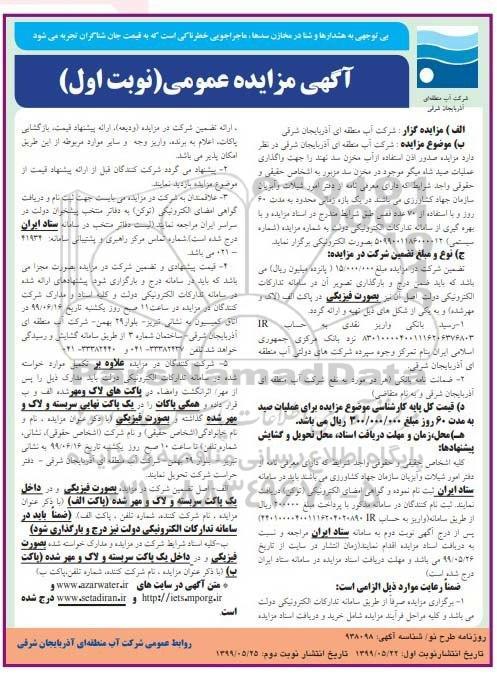 بی توجهی به هشدارها و شنا در مخازن سدها ، ماجراجویی خطرناکی است که به قیمت جان شناگران تجربه می شود
آگهی مزایده عمومی(نوبت اول)
شرکت آب منطقه‌ای
آذربایجان شرقی
الف ) مزایده گزار : شرکت آب منطقه ای آذربایجان شرقی
ب) موضوع مزایده : شرکت آب منطقه ای آذربایجان شرقی در نظر
دارد مزایده صدور اذن استفاده ازآب مخزن سد نهند را جهت واگذاری
عملیات صید شاه میگو موجود در مخزن سد مزبور به اشخاص حقیقی و
حقوقی واجد شرایط که دارای معرفی نامه از دفتر امور شیلات وآبزیان
سازمان جهاد کشاورزی می باشند در یک بازه زمانی محدود به مدت ۶۰
روز و با استفاده از ۷۰ عدد قفس طبق شرایط مندرج در اسناد مزایده و با
بهره گیری از سامانه تدارکات الکترونیکی دولت به شماره مزایده (شماره
سیستمی) ۵۰۹۹۰۰۱۱۸۶۰۰۰۰۱۲ بصورت الکترونیکی برگزار نماید.
ج) نوع و مبلغ تضمین شرکت در مزایده:
تضمین شرکت در مزایده مبلغ ۱۵/۰۰۰/۰۰۰ ( پانزده میلیون ریال) می
باشد که باید ضمن درج و بارگذاری تصویر آن در سامانه تدارکات
الکترونیکی دولت اصل آن نیز بصورت فیزیکی در پاکت الف (لاک و
مهرشده) و به یکی از شکل های ذیل تهیه و ارائه گردد.
۱-رسید بانکی واریز نقدی به حساب IR
نزد بانک مرکزی جمهوری
اسلامی ایران بنام تمرکز وجوه سپرده شرکت های دولتی آب منطقه
ای آذربایجان شرقی.
۲- ضمانت نامه بانکی (هر دو مورد به نفع شرکت آب منطقه ای
آذربایجان شرقی و به نام متقاضی)
د) قیمت کل پایه کارشناسی موضوع مزایده برای عملیات صید
به مدت ۶۰ روز مبلغ ۳۰۰/۰۰۰/۰۰۰ ریال می باشد.
هـ)محل،زمان و مهلت دریافت اسناد، محل تحویل و گشایش
پیشنهادها:
کلیه اشخاص حقیقی و حقوقی واجد شرایط که دارای معرفی نامه از
دفتر امور شیلات وآبزیان سازمان جهاد کشاورزی می باشند باید در سامانه
ستاد ایران ثبت نام نموده و گواهی امضای الکترونیکی (توکن) دریافت
نمایند. ثبت نام کنندگان در سامانه مذکور با پرداخت مبلغ ریال
از طریق سامانه(واریز به حساب IR
پس از درج آگهی نوبت دوم به سامانه ستاد ایران مراجعه و نسبت
به دریافت اسناد مزایده اقدام نمایند(زمان انتشار در سایت از تاریخ
۹۹/۰۵/۲۶ می باشد و مهلت دریافت اسناد مزایده در سامانه ستاد ایران
درج شده است)
ضمناً رعایت موارد ذیل الزامی است:
۱- برگزاری مزایده صرفاً از طریق سامانه تدارکات الکترونیکی دولت
می باشد و کلیه مراحل فرآیند مزایده شامل خرید و دریافت اسناد مزایده
، ارائه تضمین شرکت در مزایده (ودیعه)، ارائه پیشنهاد قیمت، بازگشایی
پاکات، اعلام به برنده، واریز وجه و سایر موارد مربوطه از این طریق
امکان پذیر می باشد.
۲- پیشنهاد می گردد شرکت کنندگان قبل از ارائه پیشنهاد قیمت از
موضوع مزایده بازدید نمایند.
۳- علاقمندان به شرکت در مزایده می بایست جهت ثبت نام و دریافت
گواهی امضای الکترونیکی (توکن) به دفاتر منتخب پیشخوان دولت در
سراسر ایران مراجعه نمایند.(لیست دفاتر منتخب در سامانه ستاد ایران
درج شده است).شماره تماس مرکز راهبری و پشتیبانی سامانه: ۴۱۹۳۴
- ۰۲۱ می باشد.
۴- قیمت پیشنهادی و تضمین شرکت در مزایده بصورت مجزا می
باشد که باید در سامانه درج و بارگزاری شود. پیشنهادهای ارائه شده
در سامانه تدارکات الکترونیکی دولت و کلیه اسناد و مدارک شرکت
کنندگان در مزایده در ساعت۱۱ صبح روز یکشنبه تاریخ ۹۹/۰۶/۱۶ در
اتاق کمیسیون به نشانی تبریز- بلوار ۲۹ بهمن- شرکت آب منطقه ای
آذربایجان شرقی-ساختمان شماره ۳ از طریق سامانه گشایش و رسیدگی
خواهد شد.تلفن
۵- شرکت کنندگان در مزایده علاوه بر تکمیل موارد خواسته
شده در سامانه تدارکات الکترونیکی دولت باید مدارک ذیل را پس
از مهر، اثرانگشت وامضاء، در پاکت های لاک ومهرشده الف و ب
قرار داده و همگی پاکات را در یک پاکت نهایی سربسته و لاک و
مهر شده گذاشته و بصورت فیزیکی (با ذکر عنوان مزایده ، نام و
نام خانوادگی(اشخاص حقیقی) و نام شرکت (اشخاص حقوقی)، نشانی،
شماره تلفن) تا ساعت ۱۰ صبح روز یکشنبه تاریخ ۹۹/۰۶/۱۶ به نشانی
تبریز - بلوار۲۹ بهمن- شرکت آب منطقه ای آذربایجان شرقی - دفتر
حراست شرکت تحویل نمایند.
الف- اصل تضمین شرکت در مزایده بصورت فیزیکی و در داخل
یک پاکت سربسته و لاک و مهر شده (پاکت الف) (با ذکر عنوان
مزایده ، نام شرکت کننده، شماره تلفن ، پاکت الف). (ضمناً باید در
سامانه تدارکات الکترونیکی دولت نیز درج و بارگذاری شود)
ب-کلیه اسناد شرایط شرکت در مزایده و مدارک خواسته شده بصورت
فیزیکی و در داخل یک پاکت سربسته و لاک و مهر شده (پاکت
ب) (با ذکر عنوان مزایده ، نام شرکت کننده، شماره تلفن،پاکت ب)
* متن آگهی در سایت های www.azarwater.ir و
http://iets.mporg.ir و www.setadiran.ir درج شده
است.
روزنامه طرح نو/ شناسه آگهی: ۹۳۸۰۹۸
تاریخ انتشارنوبت اول: ۱۳۹۹/۰۵/۲۲ تاریخ انتشار نوبت دوم: ۱۳۹۹/۰۵/۲۵
روابط عمومی شرکت آب منطقه‌ای آذربایجان شرقی